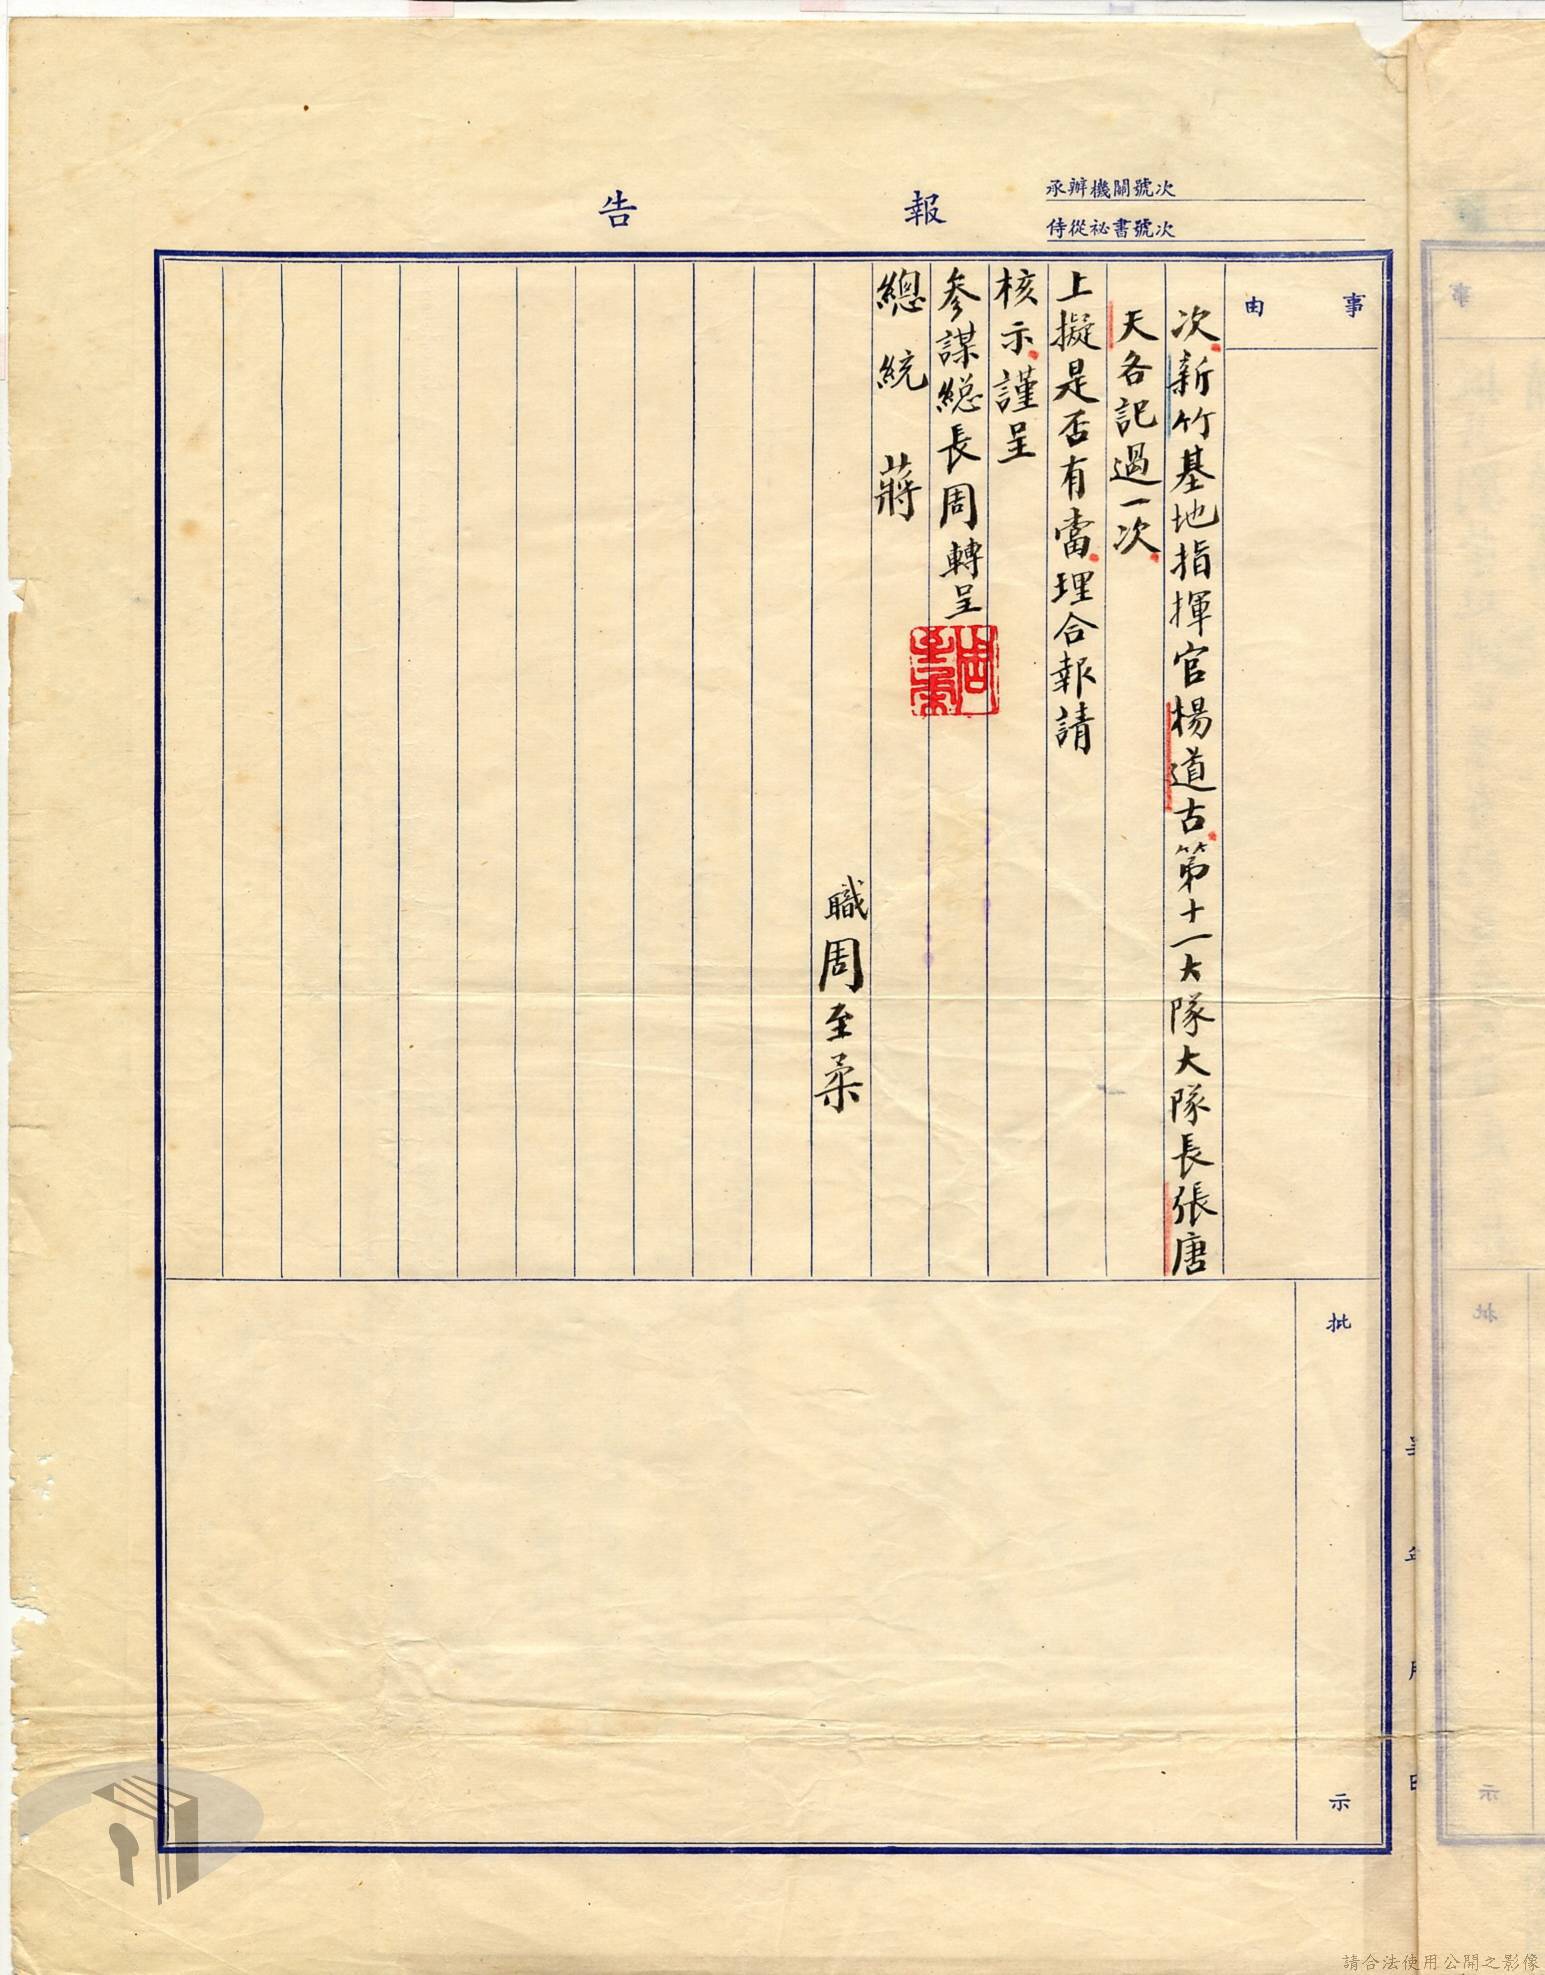 報告
承辦機關號次
侍從祕書號次
事由
次新竹基地指揮官楊道古第十一大隊大隊長張唐
天各記過一次
上擬是否有當理合報請
核示謹呈
參謀總長周轉呈
總統 蔣
職周至柔
周至柔
批示
年月日
事
批
示
請合法使用公開之影像